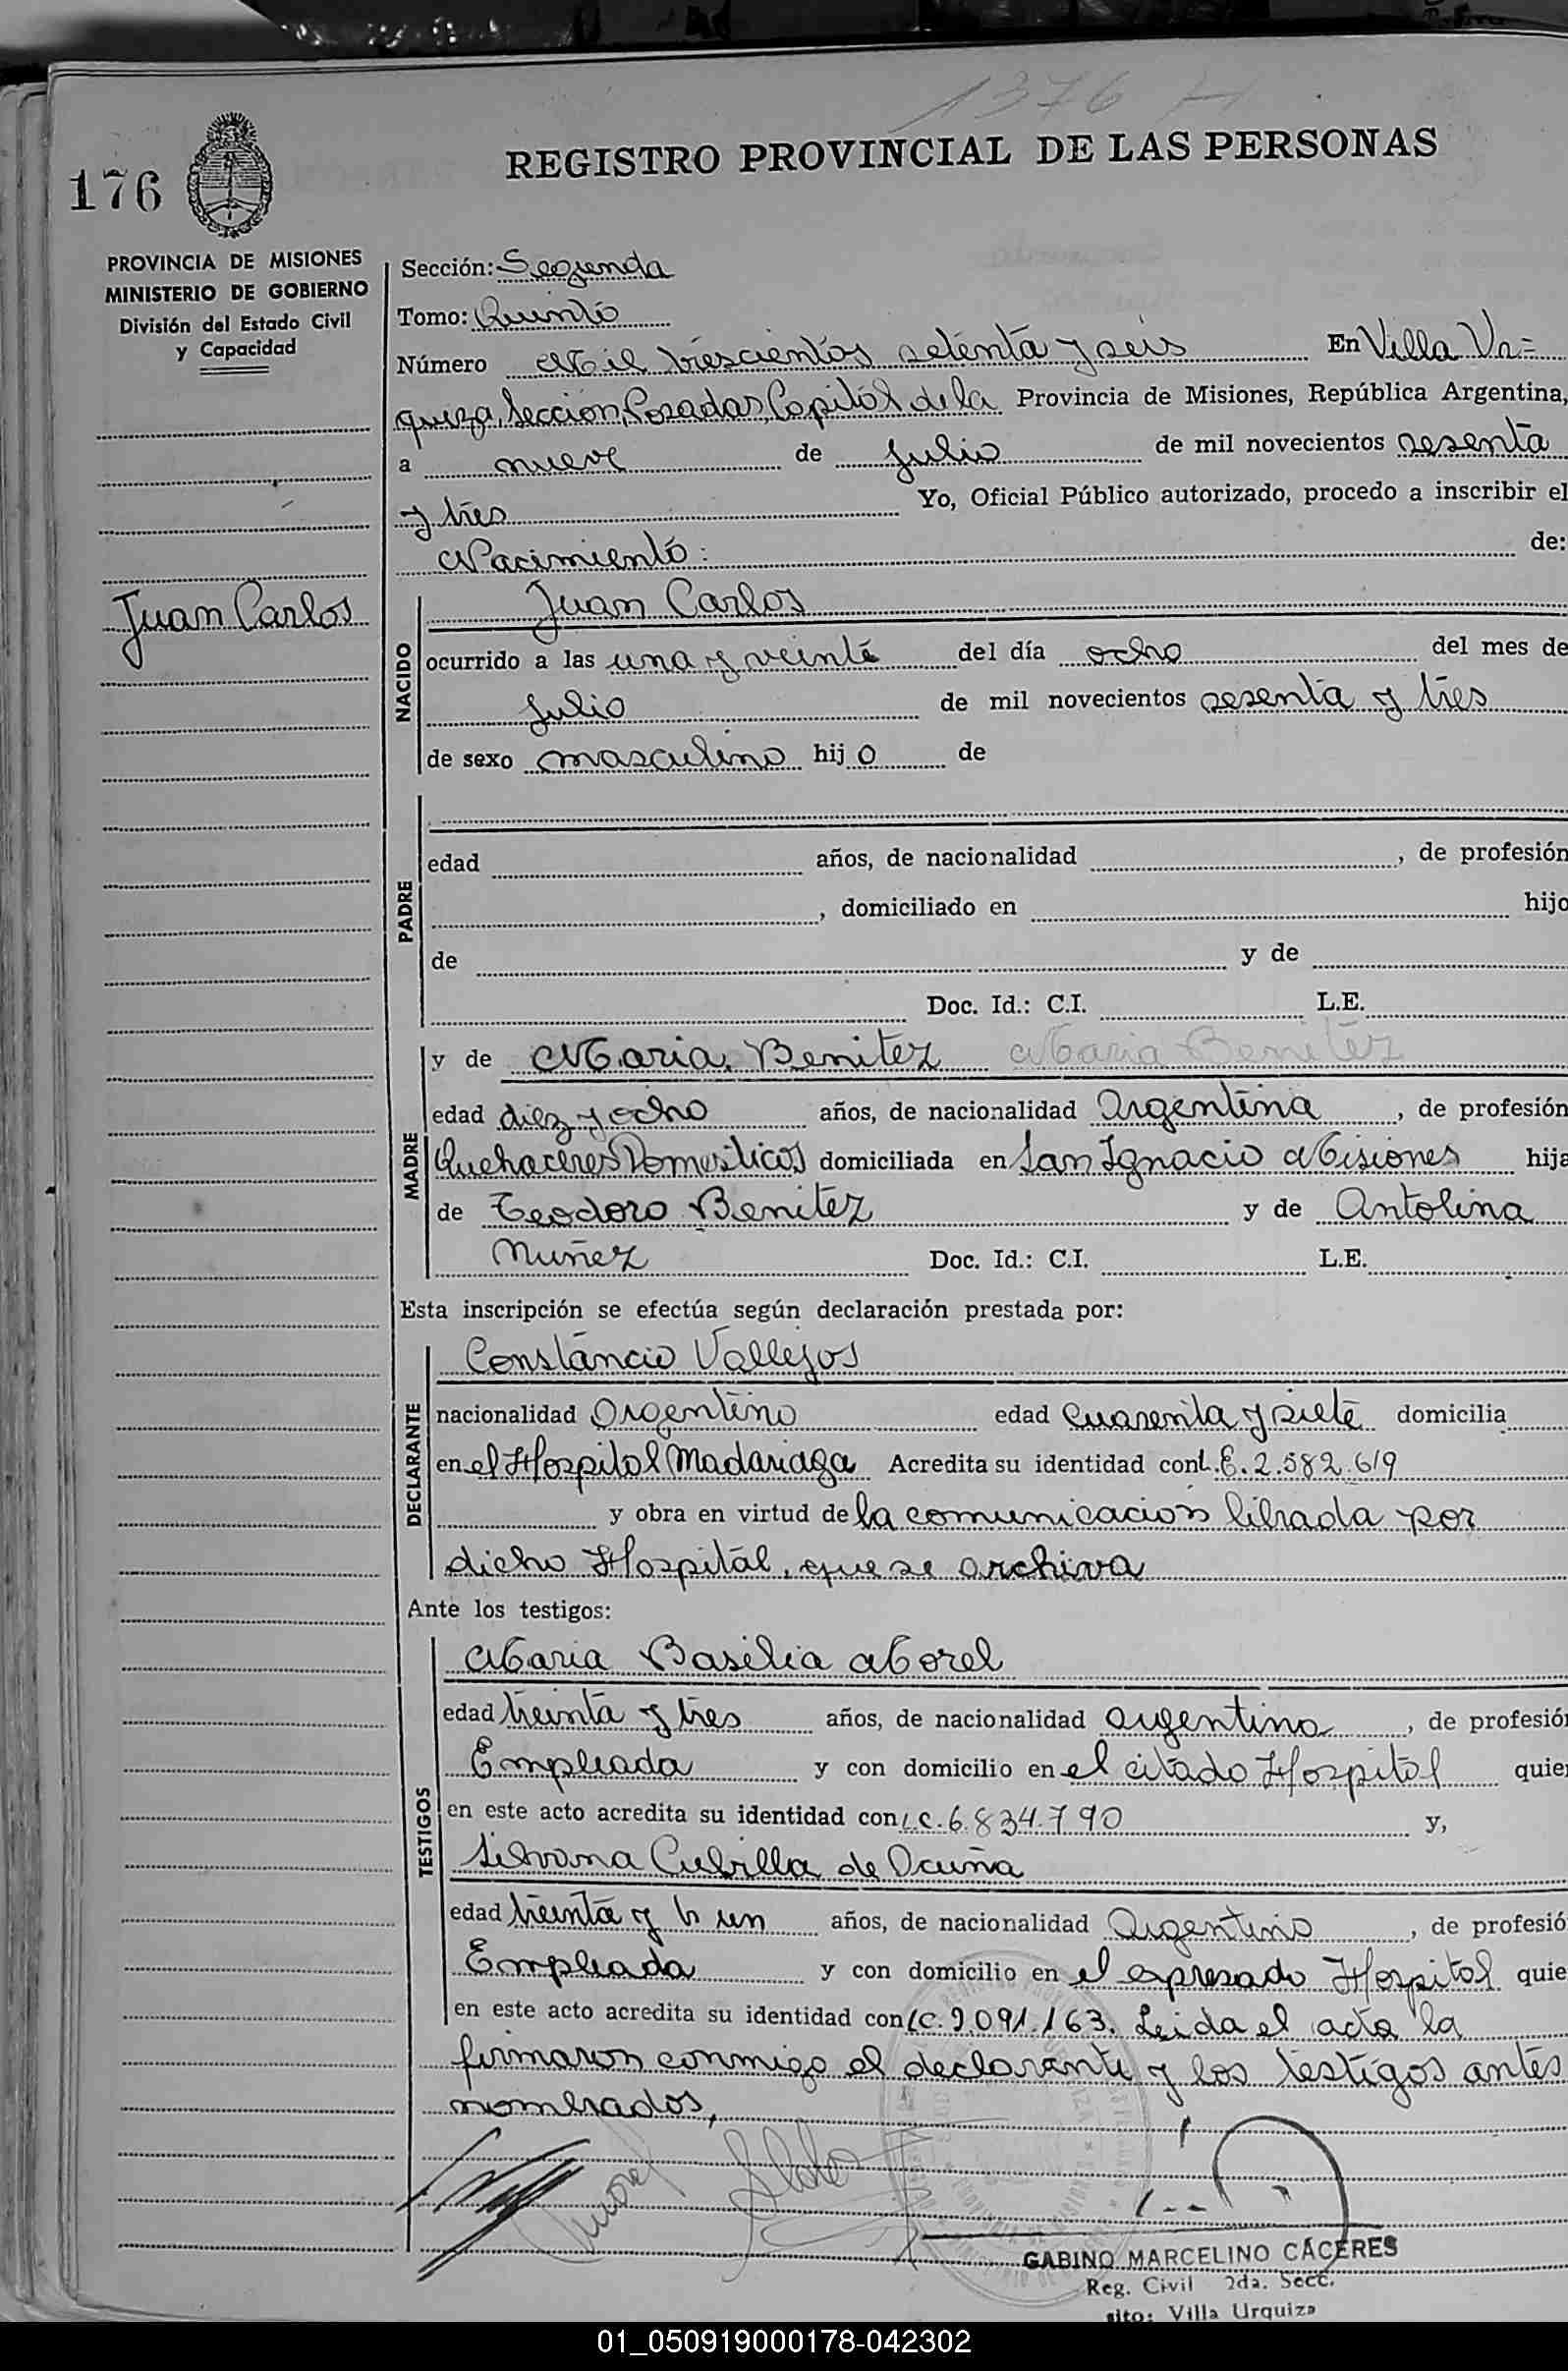 1376
176
REGISTRO PROVINCIAL DE LAS PERSONAS
PROVINCIA DE MISIONES
MINISTERIO DE GOBIERNO
División del Estado Civil
y Capacidad
Sección: Segunda
Tomo: Quinto
Número Mil trescientos setenta y seis En Villa Ur=
quiza, Sección, Posadas, Capital de la Provincia de Misiones, República Argentina,
a nueve de julio de mil novecientos sesenta
y tres Yo, Oficial Público autorizado, procedo a inscribir el
Nacimiento: de:
Juan Carlos
NACIDO
Juan Carlos
ocurrido a las una y veinte del día ocho del mes de
julio de mil novecientos sesenta y tres
de sexo masculino hijo de
PADRE
edad años, de nacionalidad , de profesión
, domiciliado en hijo
de y de
Doc. Id.: C.I. L.E.
MADRE
y de Maria Benitez Maria Benitez
edad diez y ocho años, de nacionalidad Argentina , de profesión
Quehaceres Domesticos domiciliada en San Ignacio Misiones hija
de Teodoro Benitez y de Antolina
Nuñez Doc. Id.: C.I. L.E.
Esta inscripción se efectúa según declaración prestada por:
DECLARANTE
Constancio Vallejos
nacionalidad Argentino edad cuarenta y siete domicilia
en el Hospital Madariaga Acredita su identidad con L.E. 2.582.619
y obra en virtud de la comunicacion librada por
dicho Hospital, que se archiva
Ante los testigos:
TESTIGOS
Maria Basilia Morel
edad treinta y tres años, de nacionalidad argentina , de profesión
Empleada y con domicilio en el citado Hospital quie
en este acto acredita su identidad con L.C. 6.834.790 y,
Silvana Cubilla de Ocuña
edad treinta y un años, de nacionalidad Argentina , de profesió
Empleada y con domicilio en el expresado Hospital quie
en este acto acredita su identidad con LC. 9.091.163. Leida el acta la
firmaron conmigo el declarante y los testigos antes
nombrados,
Morel
GABINO MARCELINO CÁCERES
Reg. Civil 2da. Secc.
sito: Villa Urquiza
01_050919000178-042302